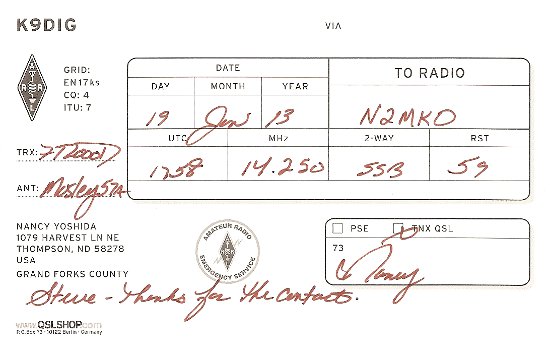 K9DIG
VIA
GRID:
EN17ks
CQ: 4
ITU: 7
DATE
TO RADIO
DAY MONTH YEAR
19 Jan 13 N2MKO
UTC MHz 2-WAY RST
1758 14.250 SSB 59
TRX: FT2000D
ANT: Mosley 57A
NANCY YOSHIDA
1079 HARVEST LN NE
THOMPSON, ND 58278
USA
GRAND FORKS COUNTY
AMATEUR RADIO
EMERGENCY SERVICE
PSE TNX QSL
73
Nancy
Steve - thanks for the contacts.
www.QSLSHOP.com
P.O. Box 73 - 10122 Berlin - Germany